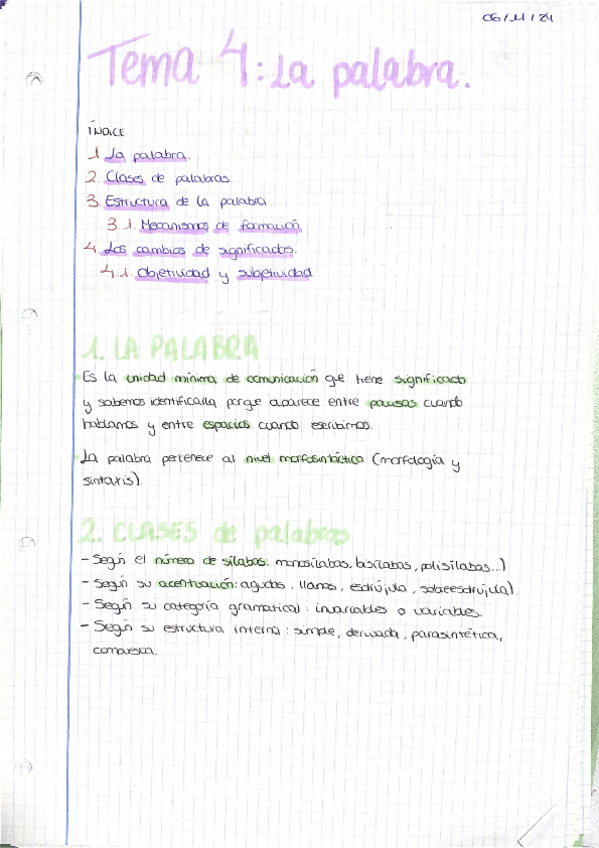 06/11/24
Tema 4: La palabra.
ÍNDICE
1 La palabra.
2. Clases de palabras
3. Estructura de la palabra.
3.1. Mecanismos de formación.
4. Los cambios de significados.
4.1. Objetividad y subjetividad
1. LA PALABRA
Es la unidad mínima de comunicación que tiene significado
y sabemos identificarla porque aparece entre pausas cuando
hablamos y entre espacios cuando escribimos.
La palabra pertenece al nivel morfosintáctico (morfología y
sintaxis).
2. CLASES de palabras
- Según el número de sílabas: monosílabas, bisílabas, polisílabas...)
- Según su acentuación: agudas, llanas, esdrújula, sobreesdrújula).
- Según su categoría gramatical: invariables o variables.
- Según su estructura interna: simple, derivada, parasintética,
compuesta.